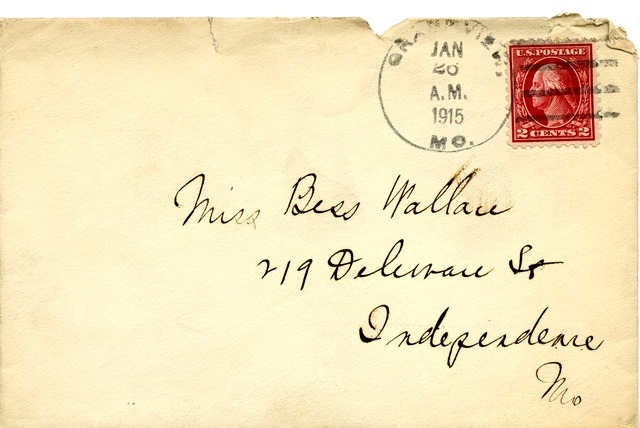 GRANDVIEW
JAN
26
A.M.
1915
MO.
U.S. POSTAGE
2 CENTS 2
Miss Bess Wallace
219 Delaware St
Independence
Mo